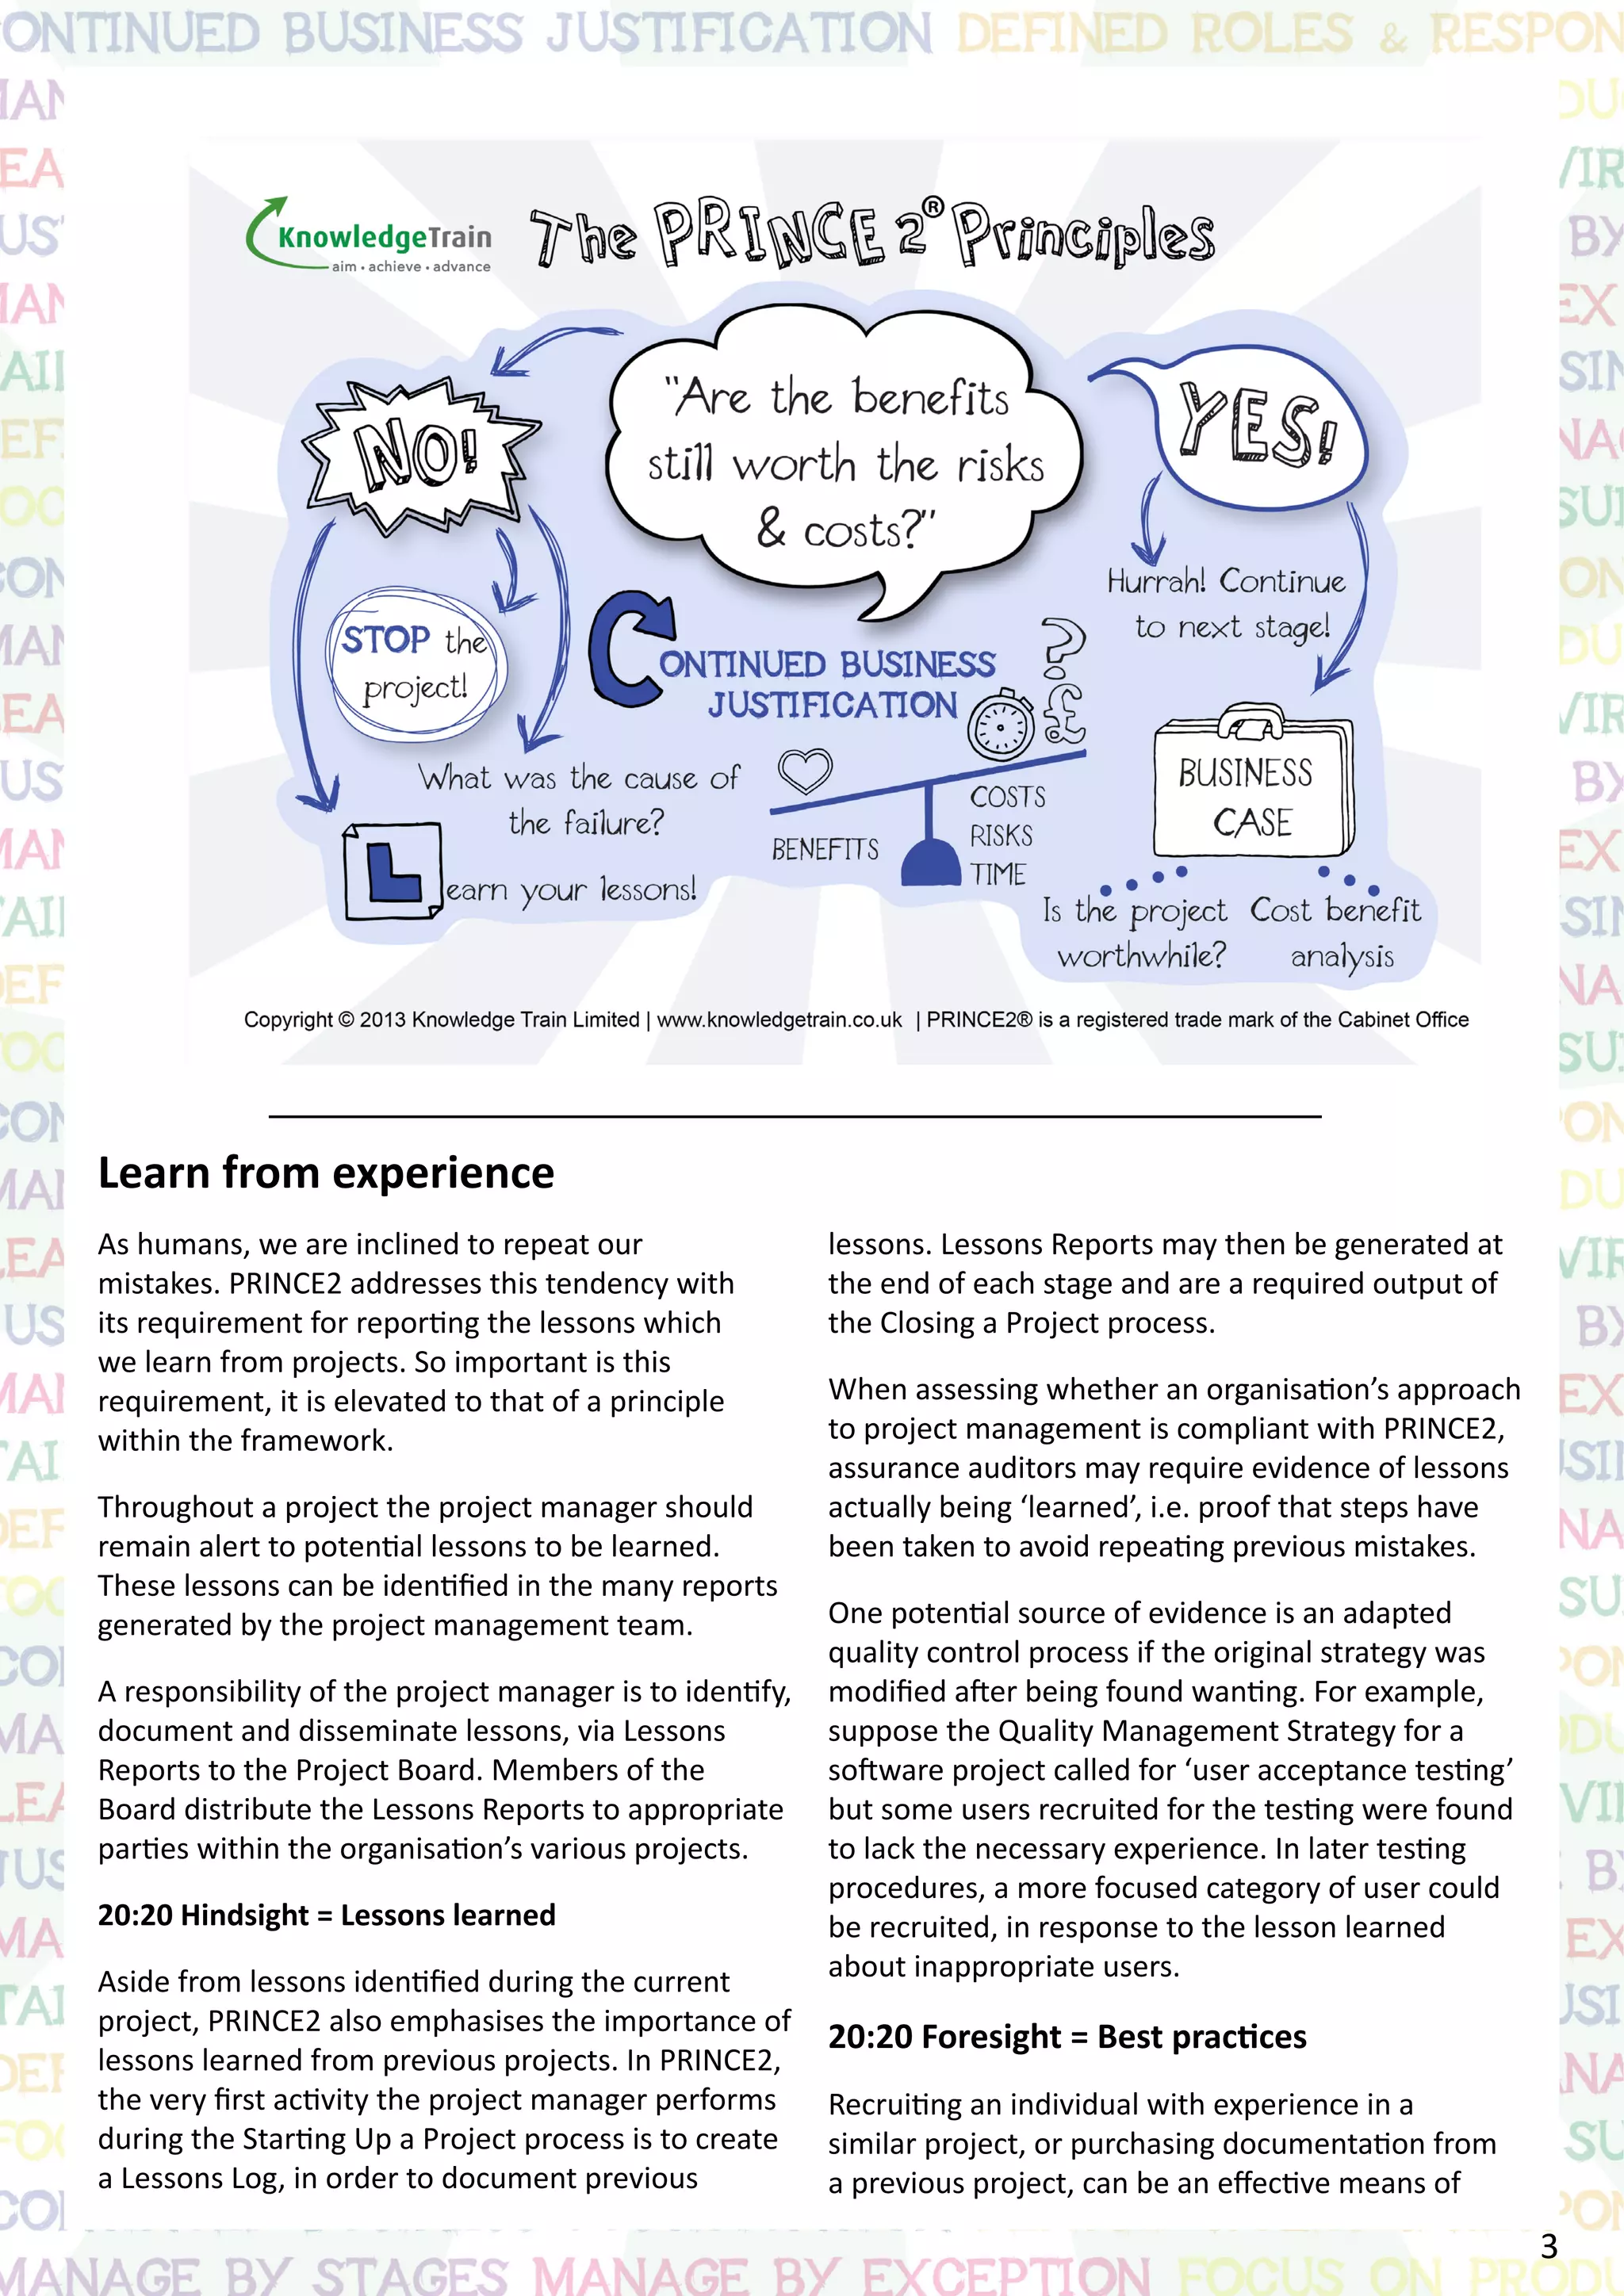 CONTINUED BUSINESS JUSTIFICATION DEFINED ROLES & RESPON
KnowledgeTrain
aim • achieve • advance
The PRINCE2® Principles
"Are the benefits
still worth the risks
& costs?"
NO!
YES!
STOP the
project!
Hurrah! Continue
to next stage!
CONTINUED BUSINESS
JUSTIFICATION
?
£
What was the cause of
the failure?
Learn your lessons!
BENEFITS
COSTS
RISKS
TIME
BUSINESS
CASE
Is the project
worthwhile?
Cost benefit
analysis
Copyright © 2013 Knowledge Train Limited | www.knowledgetrain.co.uk | PRINCE2® is a registered trade mark of the Cabinet Office
Learn from experience
As humans, we are inclined to repeat our
mistakes. PRINCE2 addresses this tendency with
its requirement for reporting the lessons which
we learn from projects. So important is this
requirement, it is elevated to that of a principle
within the framework.
Throughout a project the project manager should
remain alert to potential lessons to be learned.
These lessons can be identified in the many reports
generated by the project management team.
A responsibility of the project manager is to identify,
document and disseminate lessons, via Lessons
Reports to the Project Board. Members of the
Board distribute the Lessons Reports to appropriate
parties within the organisation’s various projects.
20:20 Hindsight = Lessons learned
Aside from lessons identified during the current
project, PRINCE2 also emphasises the importance of
lessons learned from previous projects. In PRINCE2,
the very first activity the project manager performs
during the Starting Up a Project process is to create
a Lessons Log, in order to document previous
lessons. Lessons Reports may then be generated at
the end of each stage and are a required output of
the Closing a Project process.
When assessing whether an organisation’s approach
to project management is compliant with PRINCE2,
assurance auditors may require evidence of lessons
actually being ‘learned’, i.e. proof that steps have
been taken to avoid repeating previous mistakes.
One potential source of evidence is an adapted
quality control process if the original strategy was
modified after being found wanting. For example,
suppose the Quality Management Strategy for a
software project called for ‘user acceptance testing’
but some users recruited for the testing were found
to lack the necessary experience. In later testing
procedures, a more focused category of user could
be recruited, in response to the lesson learned
about inappropriate users.
20:20 Foresight = Best practices
Recruiting an individual with experience in a
similar project, or purchasing documentation from
a previous project, can be an effective means of
3
MANAGE BY STAGES MANAGE BY EXCEPTION FOCUS ON PRODU